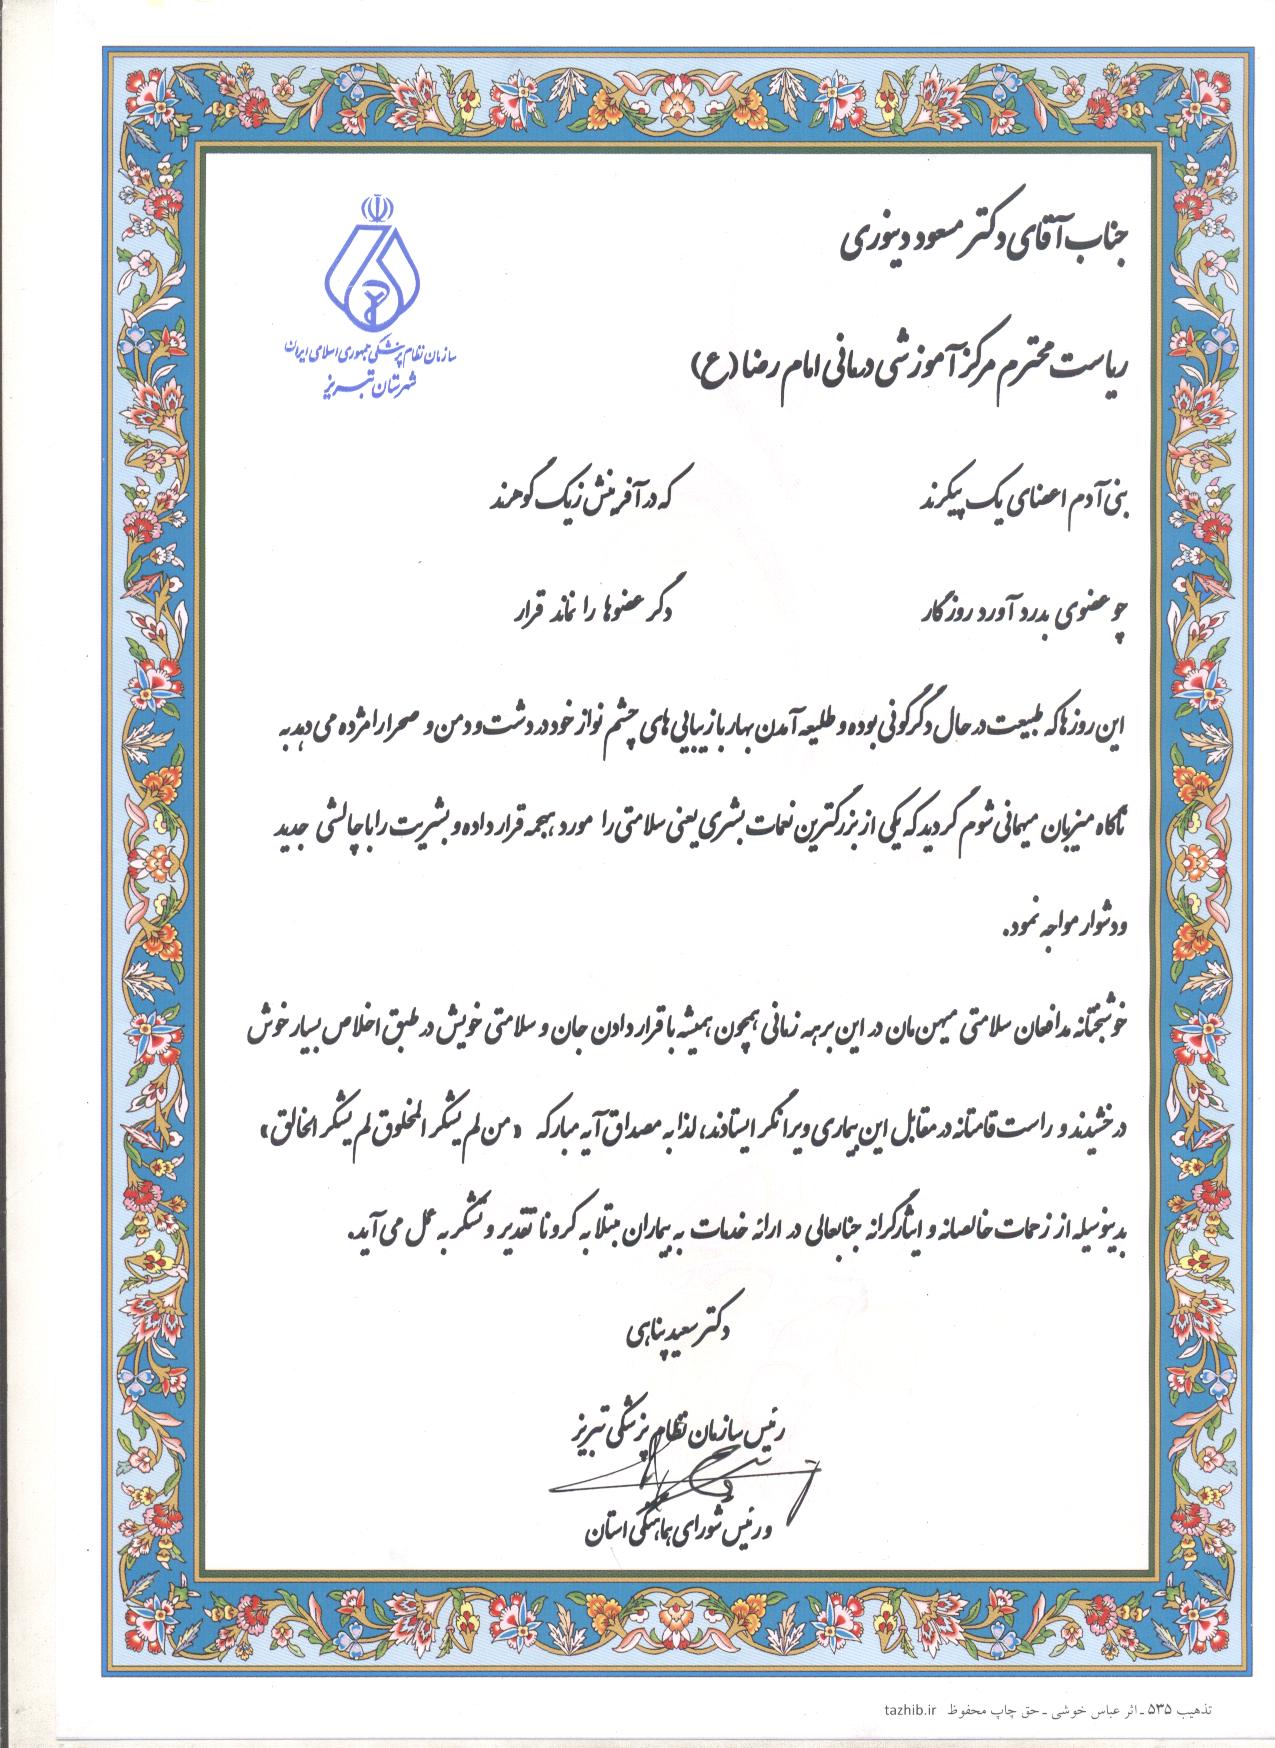 جناب آقای دکتر مسعود دینوری
سازمان نظام پزشکی جمهوری اسلامی ایران
شهرستان تبریز
ریاست محترم مرکز آموزشی درمانی امام رضا (ع)
بنی آدم اعضای یک پیکرند که در آفرینش زیک گوهرند
چو عضوی بدرد آورد روزگار دگر عضوها را نماند قرار
این روزها که طبیعت در حال دگرگونی بوده و طلیعه آمدن بهار با زیبایی های چشم نواز خود در دشت و دمن و صحرا را مژده می دهد به
ناگاه میزبان میهمانی شوم گردید که یکی از بزرگترین نعمات بشری یعنی سلامتی را مورد هجمه قرار داده و بشریت را با چالشی جدید
و دشوار مواجه نمود.
خوشبختانه مدافعان سلامتی میهن مان در این برهه زمانی همچون همیشه با قرار دادن جان و سلامتی خویش در طبق اخلاص بسیار خوش
درخشیدند و راست قامتانه در مقابل این بیماری ویرانگر ایستادند، لذا به مصداق آیه مبارکه «من لم یشکر المخلوق لم یشکر الخالق»
بدینوسیله از زحمات خالصانه و ایثارگرانه جنابعالی در ارائه خدمات به بیماران مبتلا به کرونا تقدیر و تشکر به عمل می آید.
دکتر سعید پناهی
رئیس سازمان نظام پزشکی تبریز
و رئیس شورای هماهنگی استان
تذهیب ۵۳۵ ـ اثر عباس خوشی ـ حق چاپ محفوظ tazhib.ir